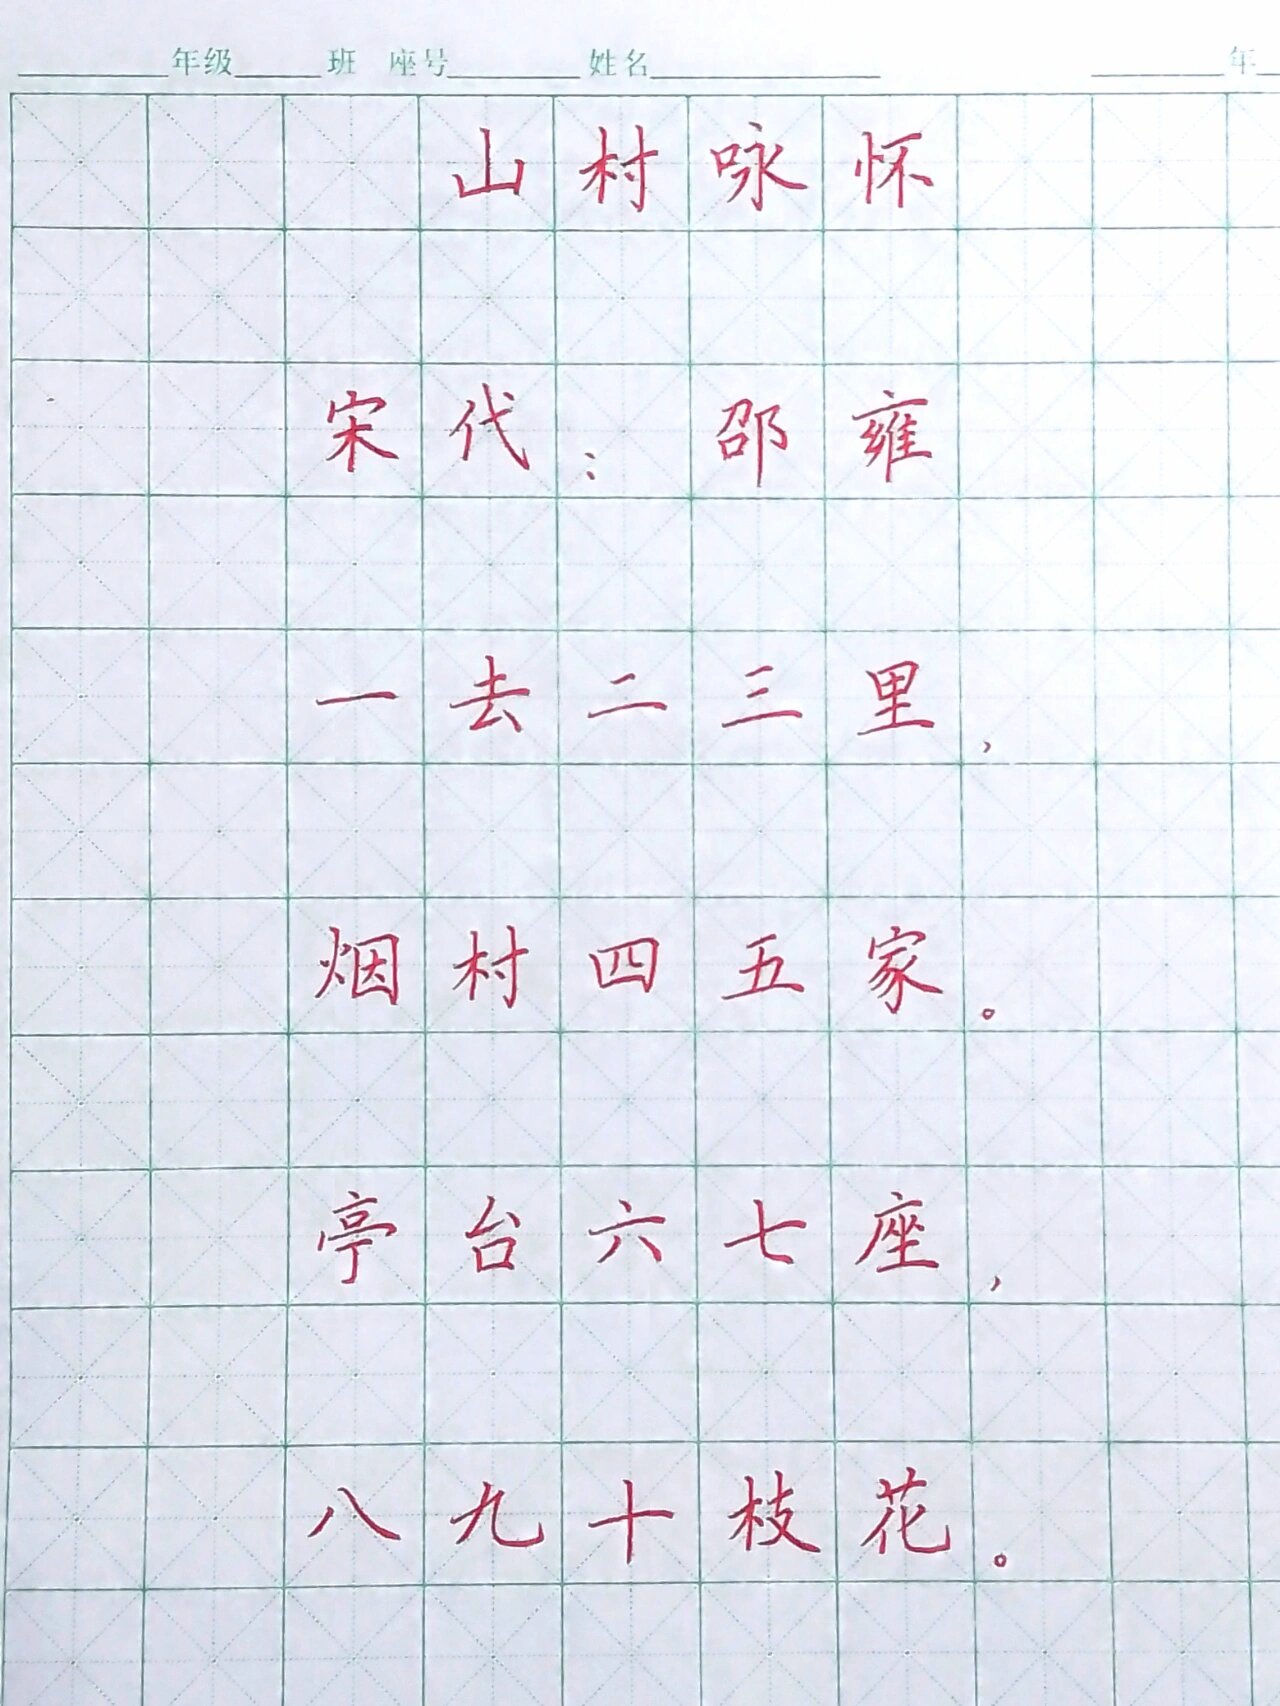 年级 班 座号 姓名 年
山村咏怀
宋代：邵雍
一去二三里，
烟村四五家。
亭台六七座，
八九十枝花。